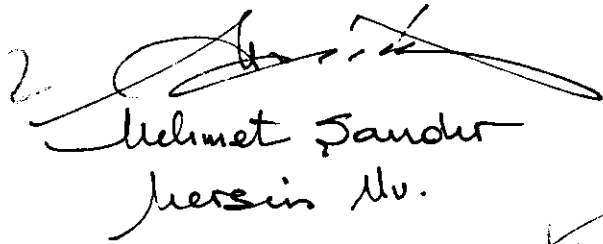 2.
Mehmet Şandır
Mersin Mv.